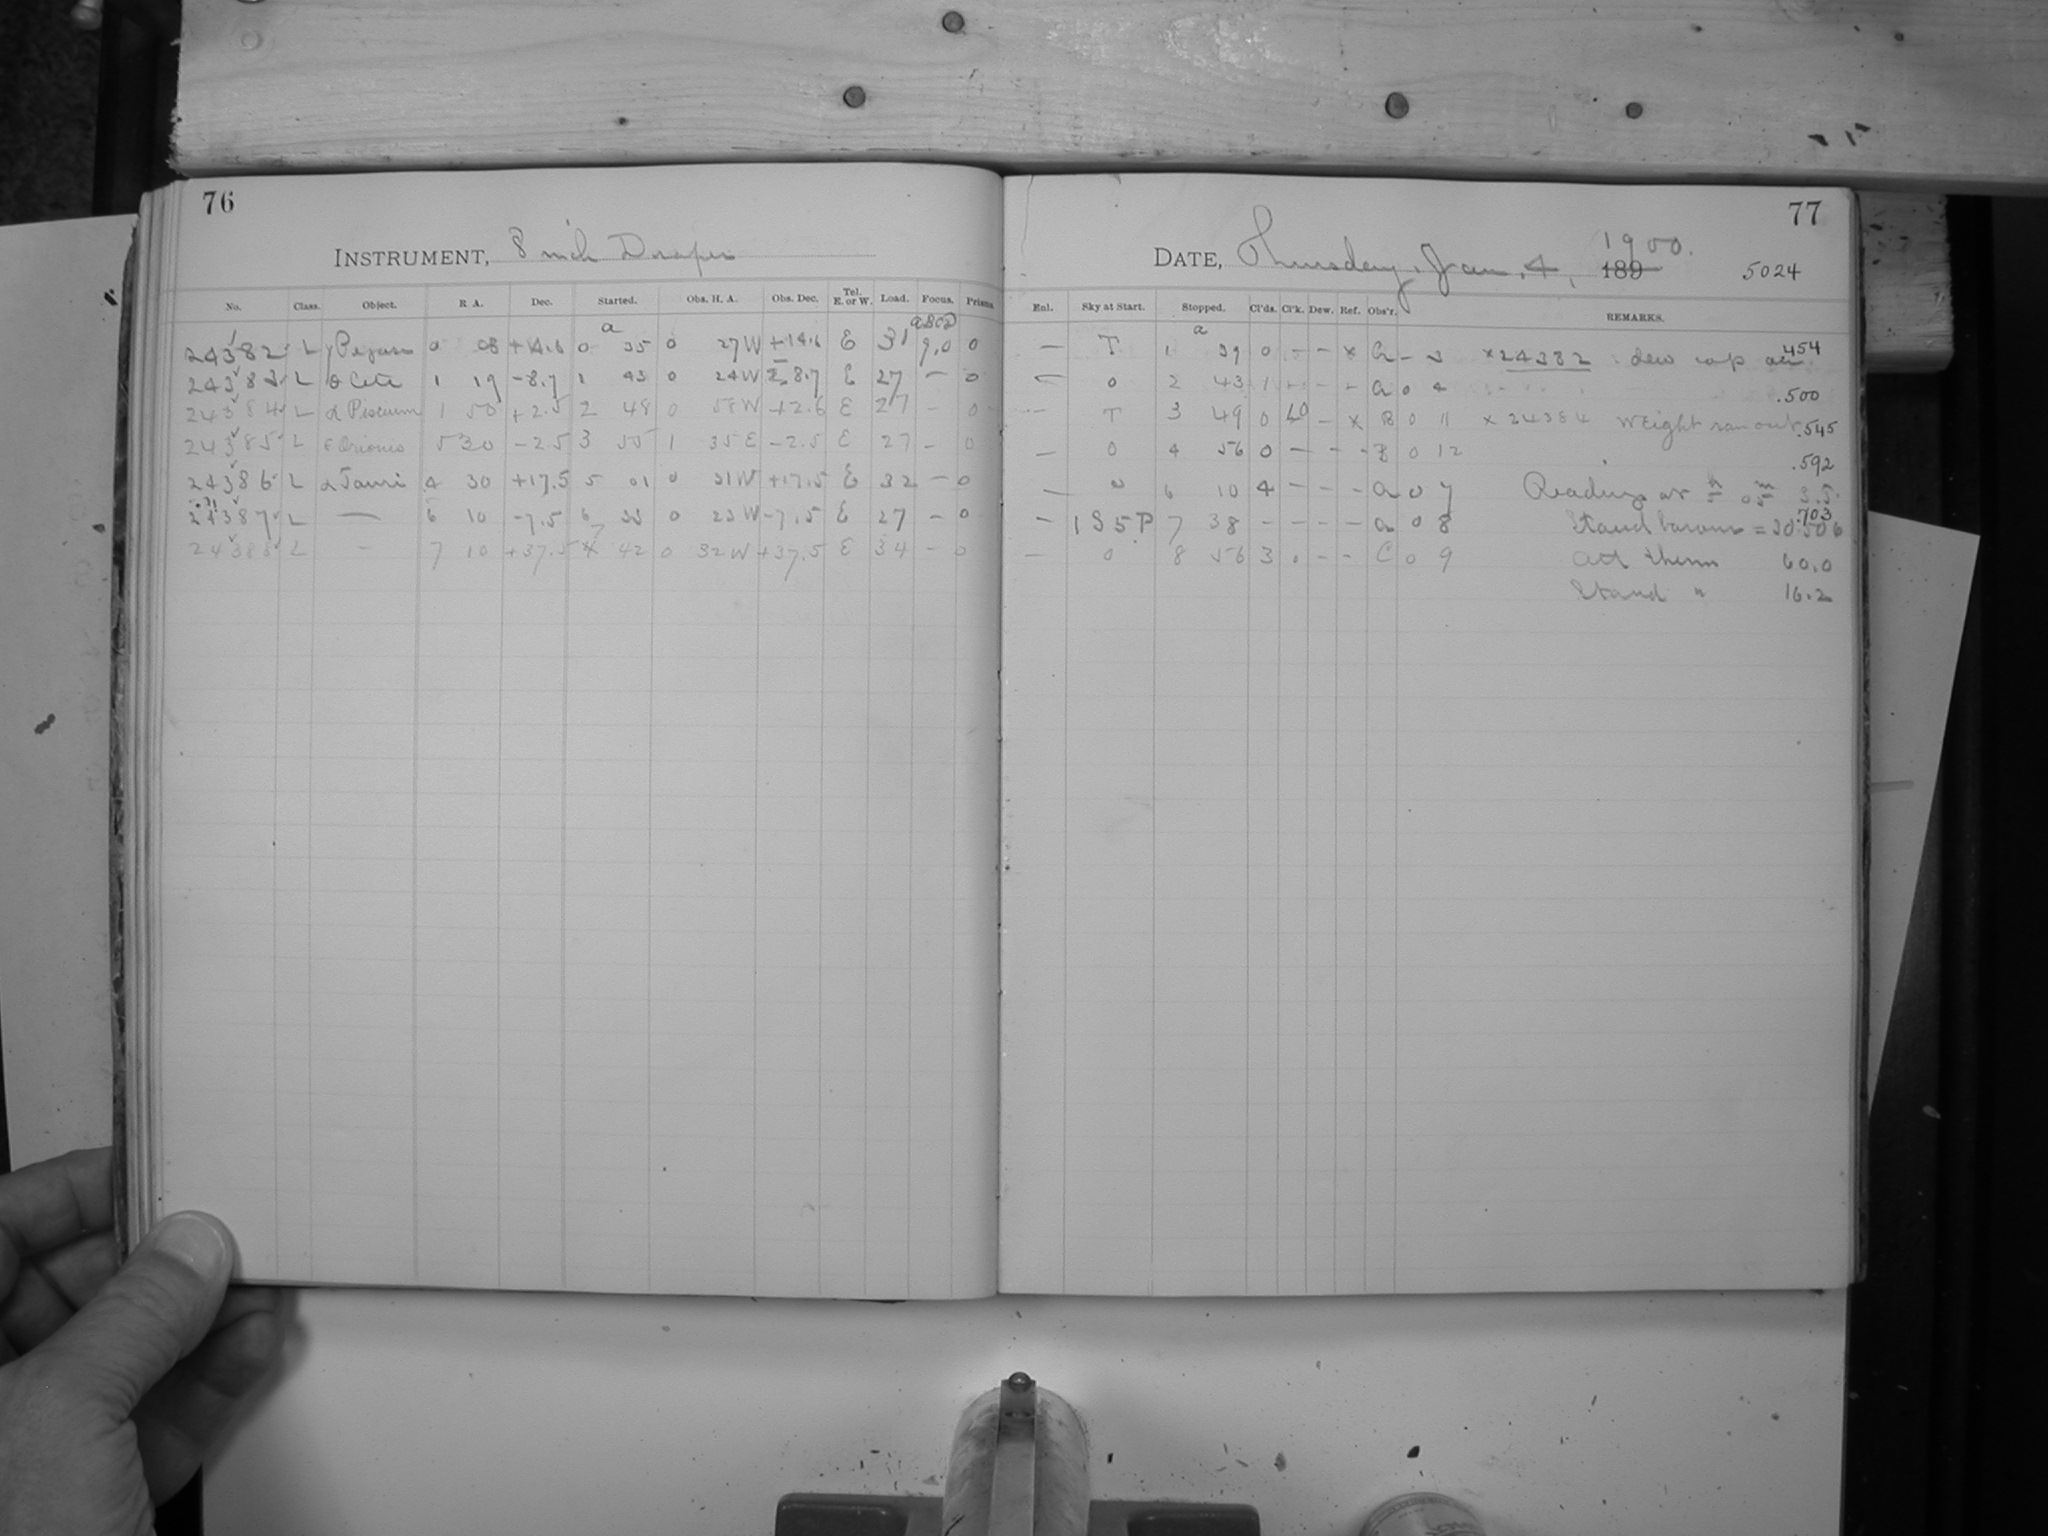 76
INSTRUMENT, 8 inch Draper
No. Class. Object. R A. Dec. Started. Obs. H. A. Obs. Dec. Tel. E. or W. Load. Focus. Prisms
24382 L γ Pegasi 0 08 +14.6 0 35 0 27 W +14.6 E 31 9.0 0
24383 L θ Ceti 1 19 -8.7 1 43 0 24 W -8.7 E 27 - 0
24384 L α Piscium 1 50 +2.5 2 48 0 58 W +2.6 E 27 - 0
24385 L ε Orionis 5 30 -2.5 3 55 1 35 E -2.5 E 27 - 0
24386 L α Tauri 4 30 +17.5 5 01 0 31 W +17.5 E 32 - 0
24387 L — 6 10 -7.5 6 33 0 23 W -7.5 E 27 - 0
24388 L - 7 10 +37.5 42 0 32 W +37.5 E 34 - 0
77
DATE, Thursday, Jan. 4, 189 1900.
5024
Enl. Sky at Start. Stopped. Cl'ds. Cl'k. Dew. Ref. Obs'r. REMARKS.
— T 1 39 0 - - x a - 3 x 24382 dew cap .454
— 0 2 43 1 - - - a 0 4 .500
— T 3 49 0 60 - x B 0 11 x 24384 Weight ran out .545
— 0 4 56 0 - - - B 0 12 .592
— 0 6 10 4 - - - a 0 7 Readings at
— 1 S 5 P 7 38 - - - - a 0 8 Stand barom = 30.506 .703
— 0 8 56 3 . - - C 0 9 Att therm 60.0
Stand " 16.2